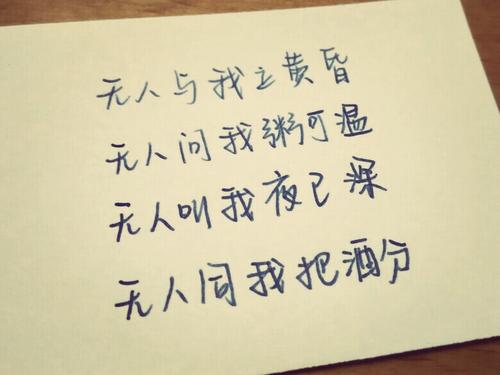 无人与我立黄昏
无人问我粥可温
无人叫我夜已深
无人同我把酒分